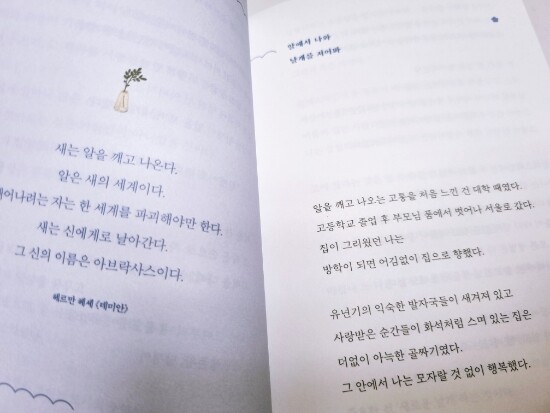 새는 알을 깨고 나온다.
알은 새의 세계이다.
태어나려는 자는 한 세계를 파괴해야만 한다.
새는 신에게로 날아간다.
그 신의 이름은 아브락사스이다.
헤르만 헤세 《데미안》
알에서 나와
날개를 저어봐
알을 깨고 나오는 고통을 처음 느낀 건 대학 때였다.
고등학교 졸업 후 부모님 품에서 벗어나 서울로 갔다.
집이 그리웠던 나는
방학이 되면 어김없이 집으로 향했다.
유년기의 익숙한 발자국들이 새겨져 있고
사랑받은 순간들이 화석처럼 스며 있는 집은
더없이 아늑한 골짜기였다.
그 안에서 나는 모자랄 것 없이 행복했다.